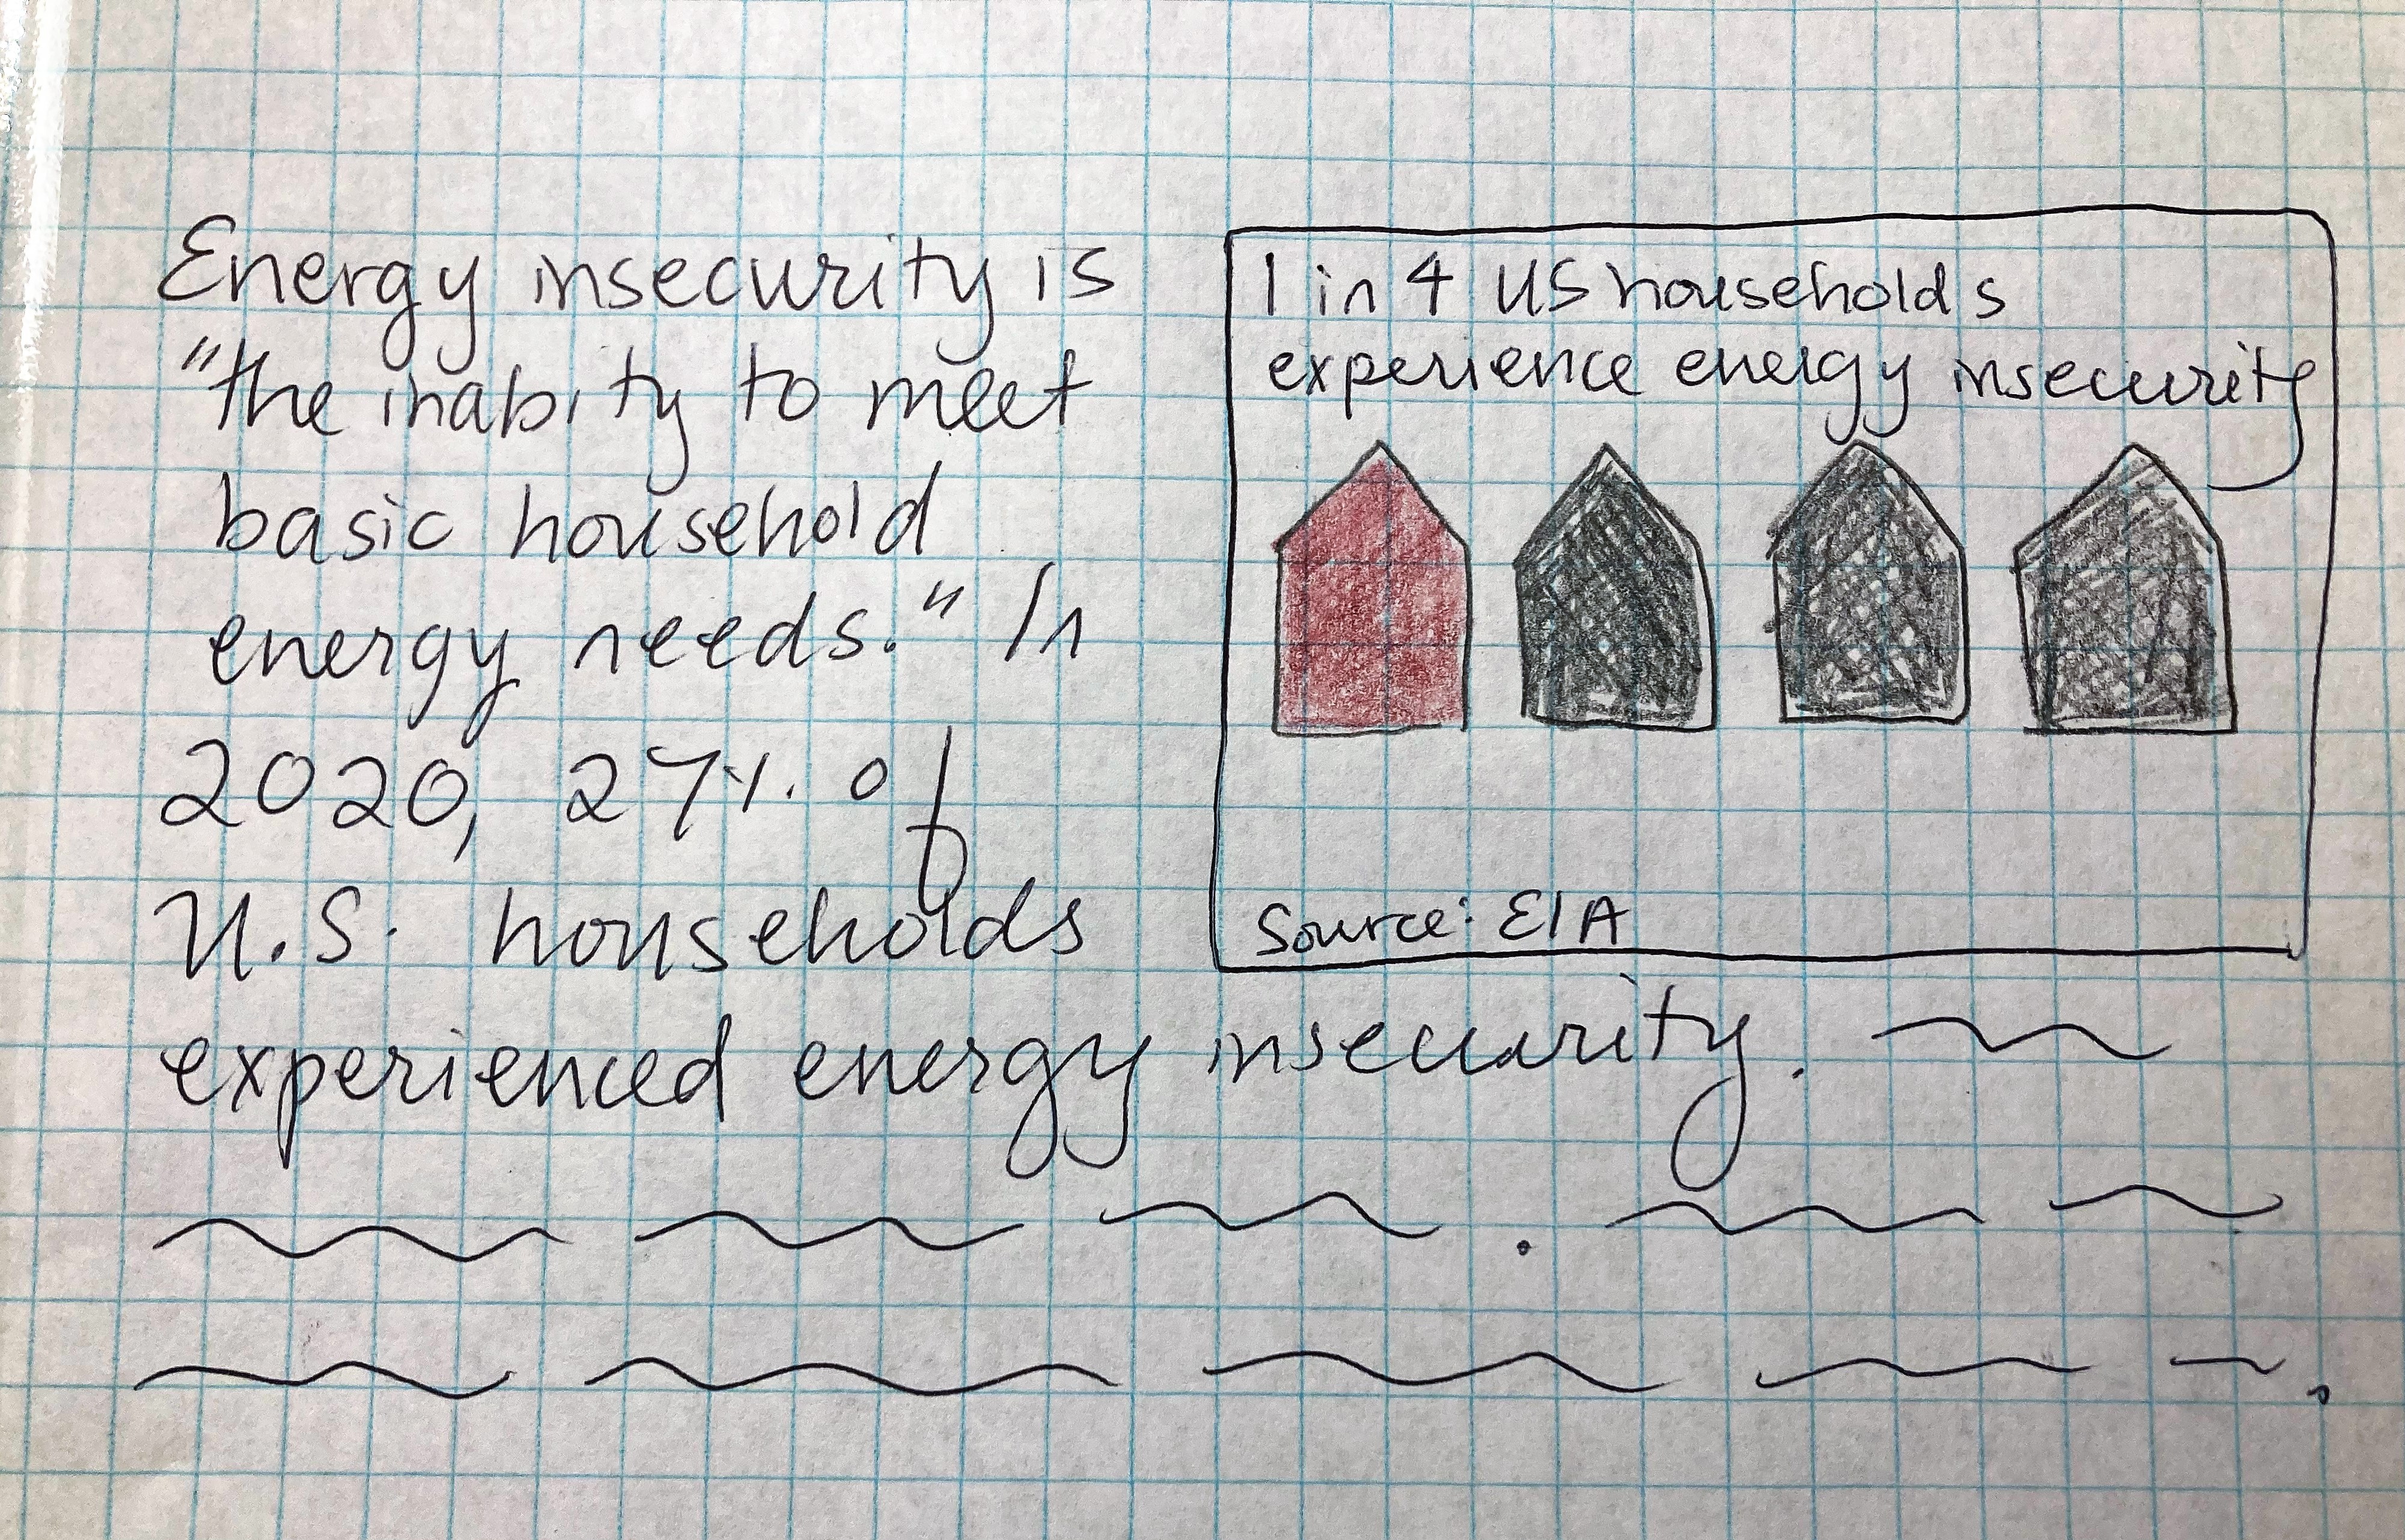 Energy insecurity is
"the inabity to meet
basic household
energy needs." In
2020, 27% of
U.S. households
experienced energy insecurity.
1 in 4 US households
experience energy insecurity
Source: EIA